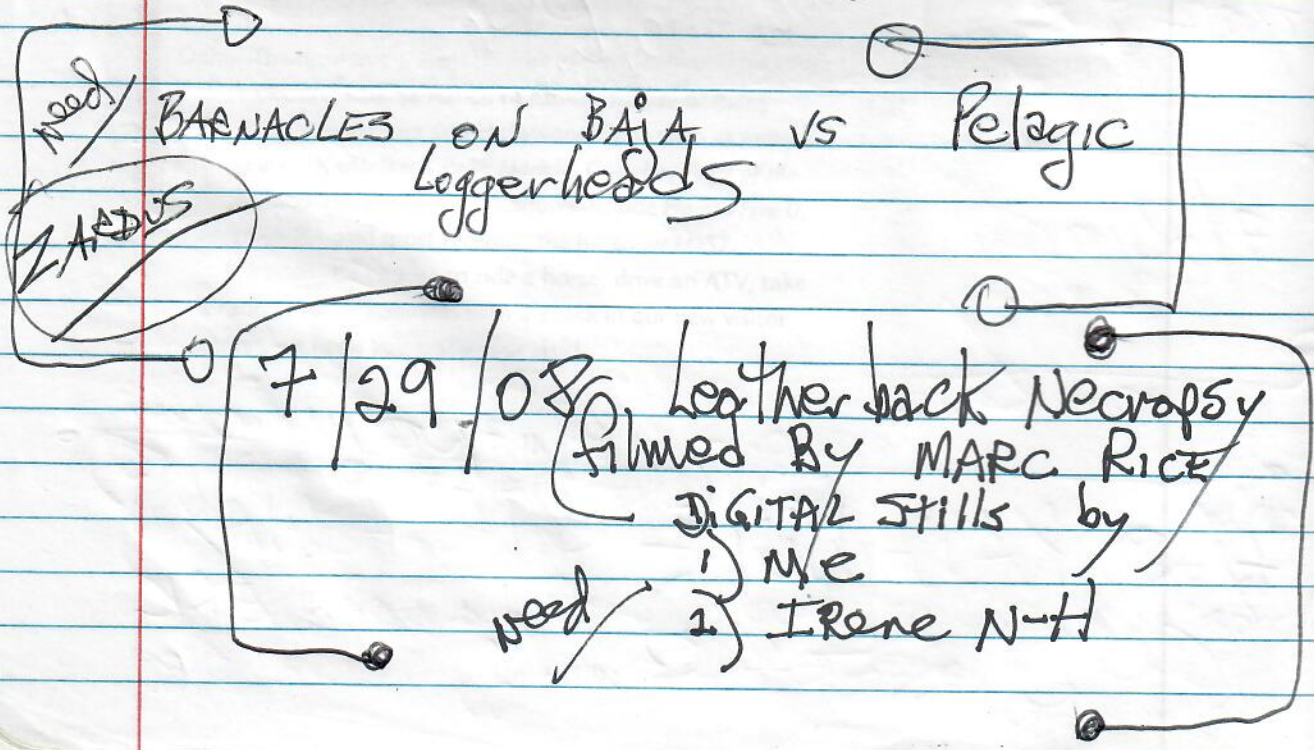 Need/ BARNACLES ON BAJA vs Pelagic
Loggerheads
ZARDUS
7/29/08 Leatherback Necropsy
filmed By MARC RICE
DIGITAL Stills by
1) Me
Need/ 2) IRene N-H